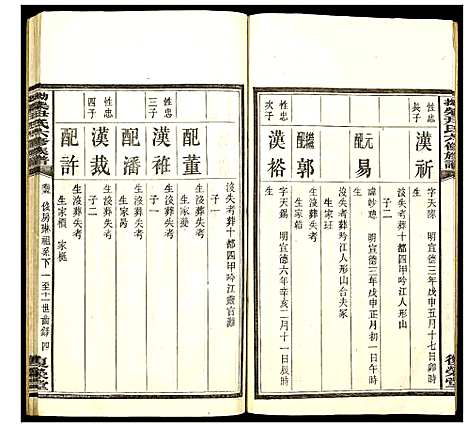 性忠
長子
漢祈
字天錫 明宣德三年戊申五月十七日卯時
生沒失考葬吟江人形山
子二
元配
易
諱妙聰 明宣德三年戊申正月初一日辰時
生沒失考葬吟江人形山合夫冢
生家玨
繼配
郭
生沒葬失考
生家
性忠
次子
漢裕
字天錫 明宣德六年辛亥二月十一日辰時
沒失考葬十都四甲吟江靈官
子一
配董
生沒葬失考
生家
性忠
三子
漢
生沒葬失考
子一
配潘
生沒葬失考
生家芮
性忠
四子
漢裁
生沒葬失考
子二
配許
生沒葬失考
生家楨 家梃
俊房琳祖系下一至十一世齒錄 四
復榮堂